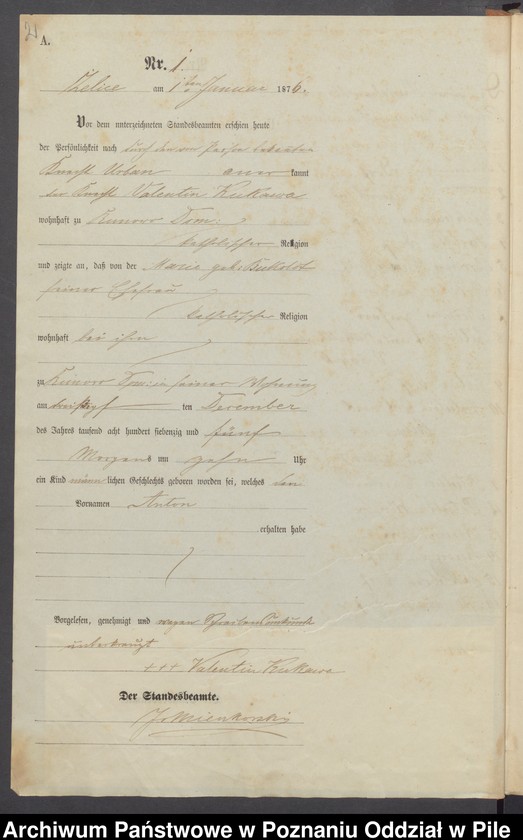 21
A.
Nr. 1.
Zelice am 1ten Januar 1876.
Vor dem unterzeichneten Standesbeamten erschien heute
der Persönlichkeit nach durch den von Person bekannten
Knecht Urban anerkannt
der Knecht Valentin Kukawa
wohnhaft zu Runowo Dom:
katholischer Religion
und zeigte an, daß von der Marie geb.
seiner Ehefrau
katholische Religion
wohnhaft bei ihm
zu Runowo Dom: in seiner Wohnung
am ten December
des Jahres tausend acht hundert siebenzig und fünf
Morgens um zehn Uhr
ein Kind männlichen Geschlechts geboren worden sei, welches den
Vornamen Anton
erhalten habe
Vorgelesen, genehmigt und wegen Schreibensunkunde
unterkreuzt
+++ Valentin Kukawa
Der Standesbeamte.
Archiwum Państwowe w Poznaniu Oddział w Pile